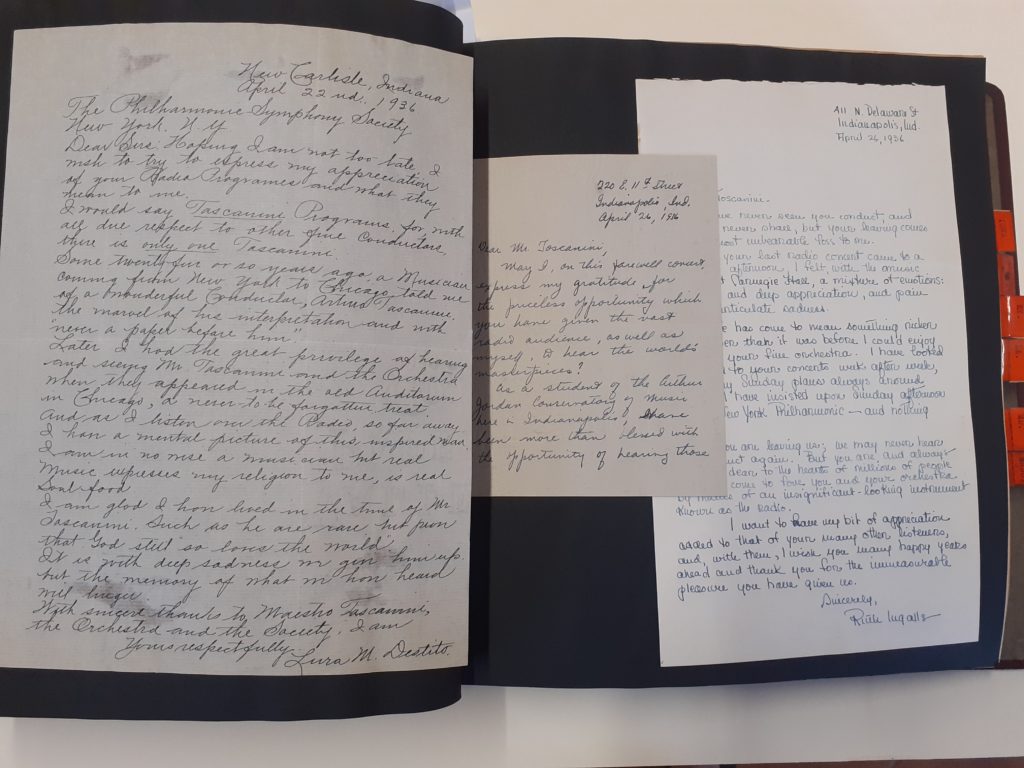 New Carlisle, Indiana
April 22nd, 1936
The Philharmonic Symphony Society
New York. N.Y
Dear Sirs: Hoping I am not too late, I
wish to try to express my appreciation
of your Radio Programes and what they
mean to me.
I would say Tascanini Programs, for, with
all due respect to other fine Conductors,
there is only one Tascanini
Some twenty or so years ago a Musician
coming from New York to Chicago, told me
of a wonderful Conductor, Arturo Tascanini,
the marvel of his interpretation and with
never a paper before him"
Later I had the great privilege of hearing
and seeing Mr. Tascanini and the Orchestra
when they appeared in the old Auditorium
in Chicago, a never to be forgotten treat.
And as I listen over the Radio, so far away
I have a mental picture of this inspired man.
I am in no wise a musician but real
Music expresses my religion to me, is real
Soul-food
I am glad I have lived in the time of Mr.
Tascanini. Such as he are rare but prove
that God still so loves the world
It is with deep sadness we give him up.
but the memory of what we have heard
will linger
With sincere thanks to Maestro Tascanini,
the Orchestra and the Society, I am
Yours respectfully
Lura M. Destito.
220 E. 11th Street
Indianapolis, Ind.
April 26, 1936
Dear Mr. Toscanini,
May I, on this farewell concert,
express my gratitude for
the priceless opportunity which
you have given the vast
radio audience, as well as
myself, to hear the world's
masterpieces?
As a student of the Arthur
Jordan Conservatory of Music
here in Indianapolis, I have
been more than blessed with
the opportunity of hearing those
411 N. Delaware St
Indianapolis, Ind.
April 26, 1936
Toscanini.
never seen you conduct, and
never share, but your leaving causes
most unbearable loss to me.
your last radio concert came to a
afternoon, I felt, with the music
Carnegie Hall, a mixture of emotions:
and deep appreciation, and pain
sadness.
has come to mean something richer
than it was before I could enjoy
your fine orchestra. I have looked
to your concerts week after week,
Sunday plans always around
I have insisted upon Sunday afternoon
New York Philharmonic — and nothing
you are leaving us; we may never hear
again. But you are, and always
dear to the hearts of millions of people
come to love you and your orchestra
by means of an insignificant-looking instrument
known as the radio.
I want to have my bit of appreciation
added to that of your many other listeners,
and, with them, I wish you many happy years
ahead and thank you for the immeasurable
pleasure you have given us.
Sincerely,
Ruth Ingalls